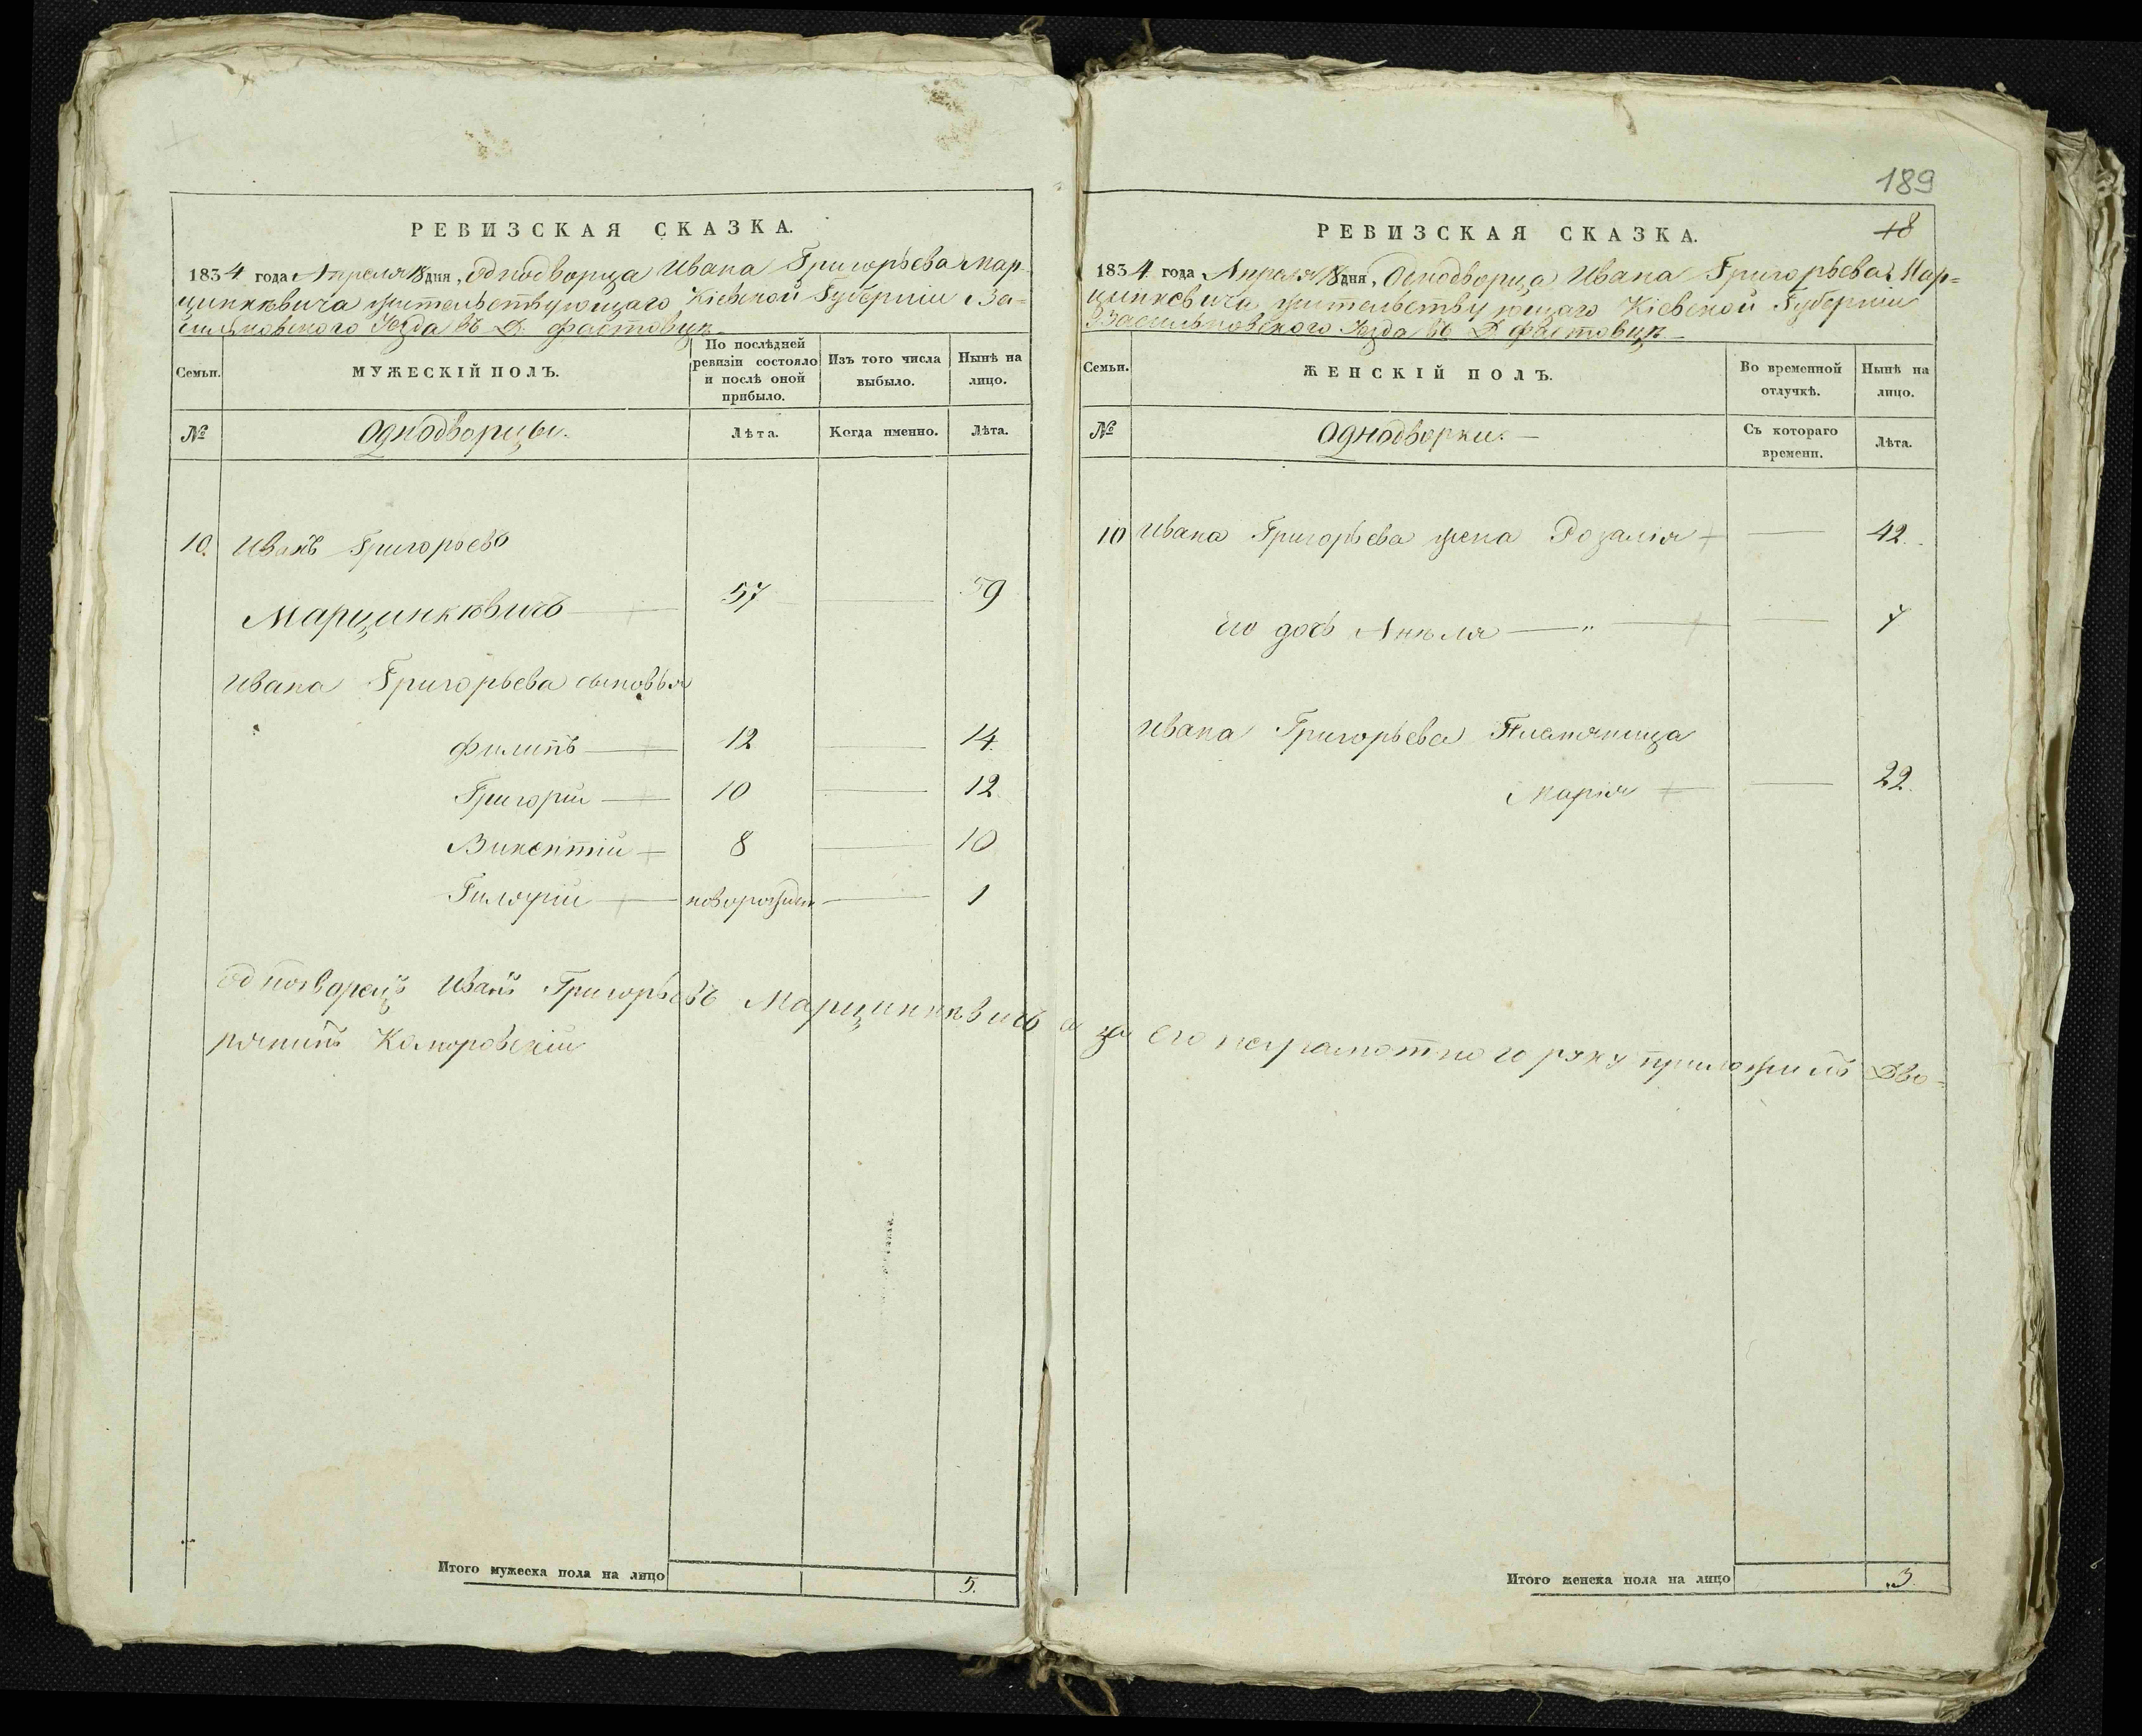 РЕВИЗСКАЯ СКАЗКА.
1834 года Апреля 18 дня, Однодворца Ивана Григорьева Мар-
цинкѣвича жительствующаго Кіевской Губерніи Ва-
сильковского Уезда въ Д. Фастовцѣ
Семьи.
МУЖЕСКІЙ ПОЛЪ.
По послѣдней ревизіи состояло и послѣ оной прибыло.
Изъ того числа выбыло.
Нынѣ на лицо.
№
Однодворцы.
Лѣта.
Когда именно.
Лѣта.
10. Иванъ Григорьевъ
Марцинкѣвичъ — 57 — 59
Ивана Григорьева сыновья
Филипъ — 12 — 14.
Григорій — 10 — 12.
Викентій — 8 — 10
Гилярій — новорожден — 1
Однодворецъ Иванъ Григорьевъ Марцинкѣвичъ а за его неграмотного руку приложилъ Дво-
рянинъ Коморовскій
Итого мужеска пола на лицо 5.
189
18
РЕВИЗСКАЯ СКАЗКА.
1834 года Апреля 18 дня, Однодворца Ивана Григорьева Мар=
цинкевича жительствующаго Кіевской Губерніи
Васильковского Уезда въ Д Фастовцѣ
Семьи.
ЖЕНСКІЙ ПОЛЪ.
Во временной отлучкѣ.
Нынѣ на лицо.
№
Однодворки. —
Съ котораго времени.
Лѣта.
10 Ивана Григорьева жена Розалія — 42.
его дочь Анѣля — " — 7
Ивана Григорьева Племяница
Марія — 22.
Итого женска пола на лицо 3.